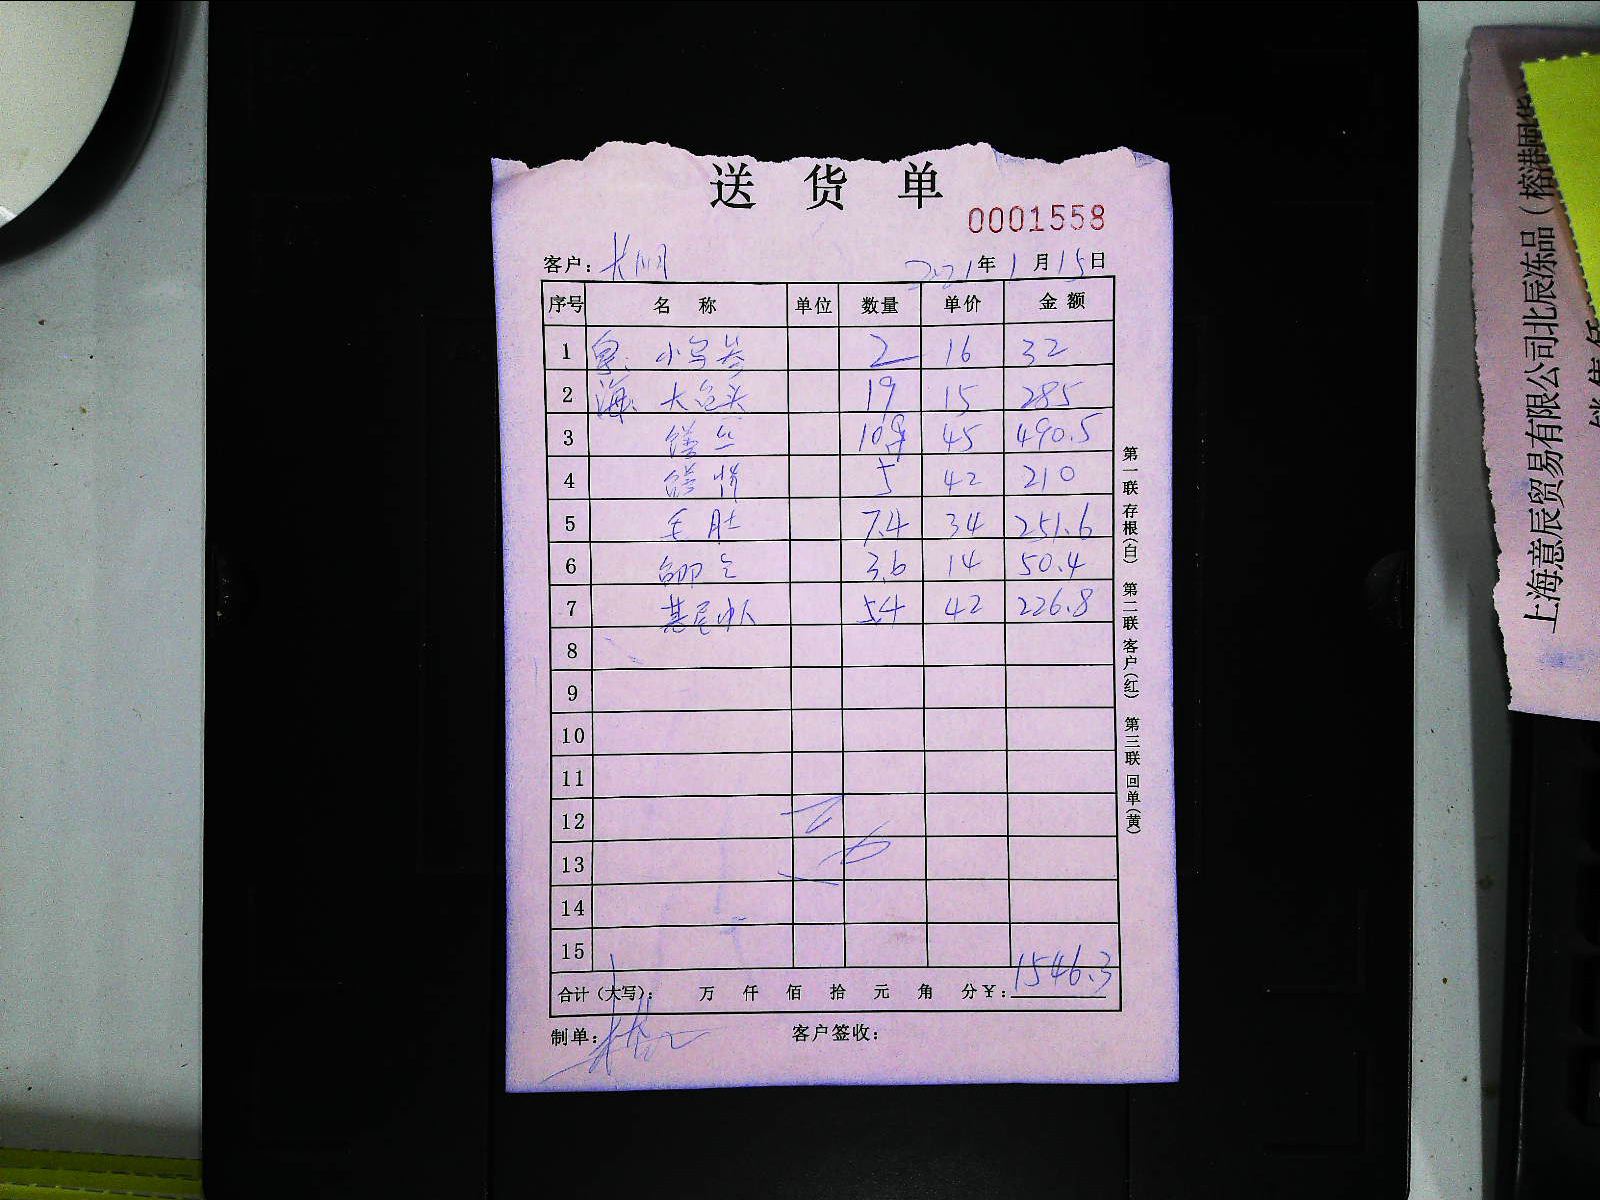 送货单
0001558
客户： 2021年1月15日
序号 名称 单位 数量 单价 金额
1 小乌参 2 16 32
2 海 大鱼头 19 15 285
3 鳝丝 10.9 45 490.5
4 鳝 5 42 210
5 毛肚 7.4 34 251.6
6 3.6 14 50.4
7 基尾虾 5.4 42 226.8
8
9
10
11
12
13
14
15
合计（大写）： 万 仟 佰 拾 元 角 分￥：1546.3
制单： 客户签收：
第一联 存根（白） 第二联 客户（红） 第三联 回单（黄）
上海意辰贸易有限公司北辰冻品（榕港